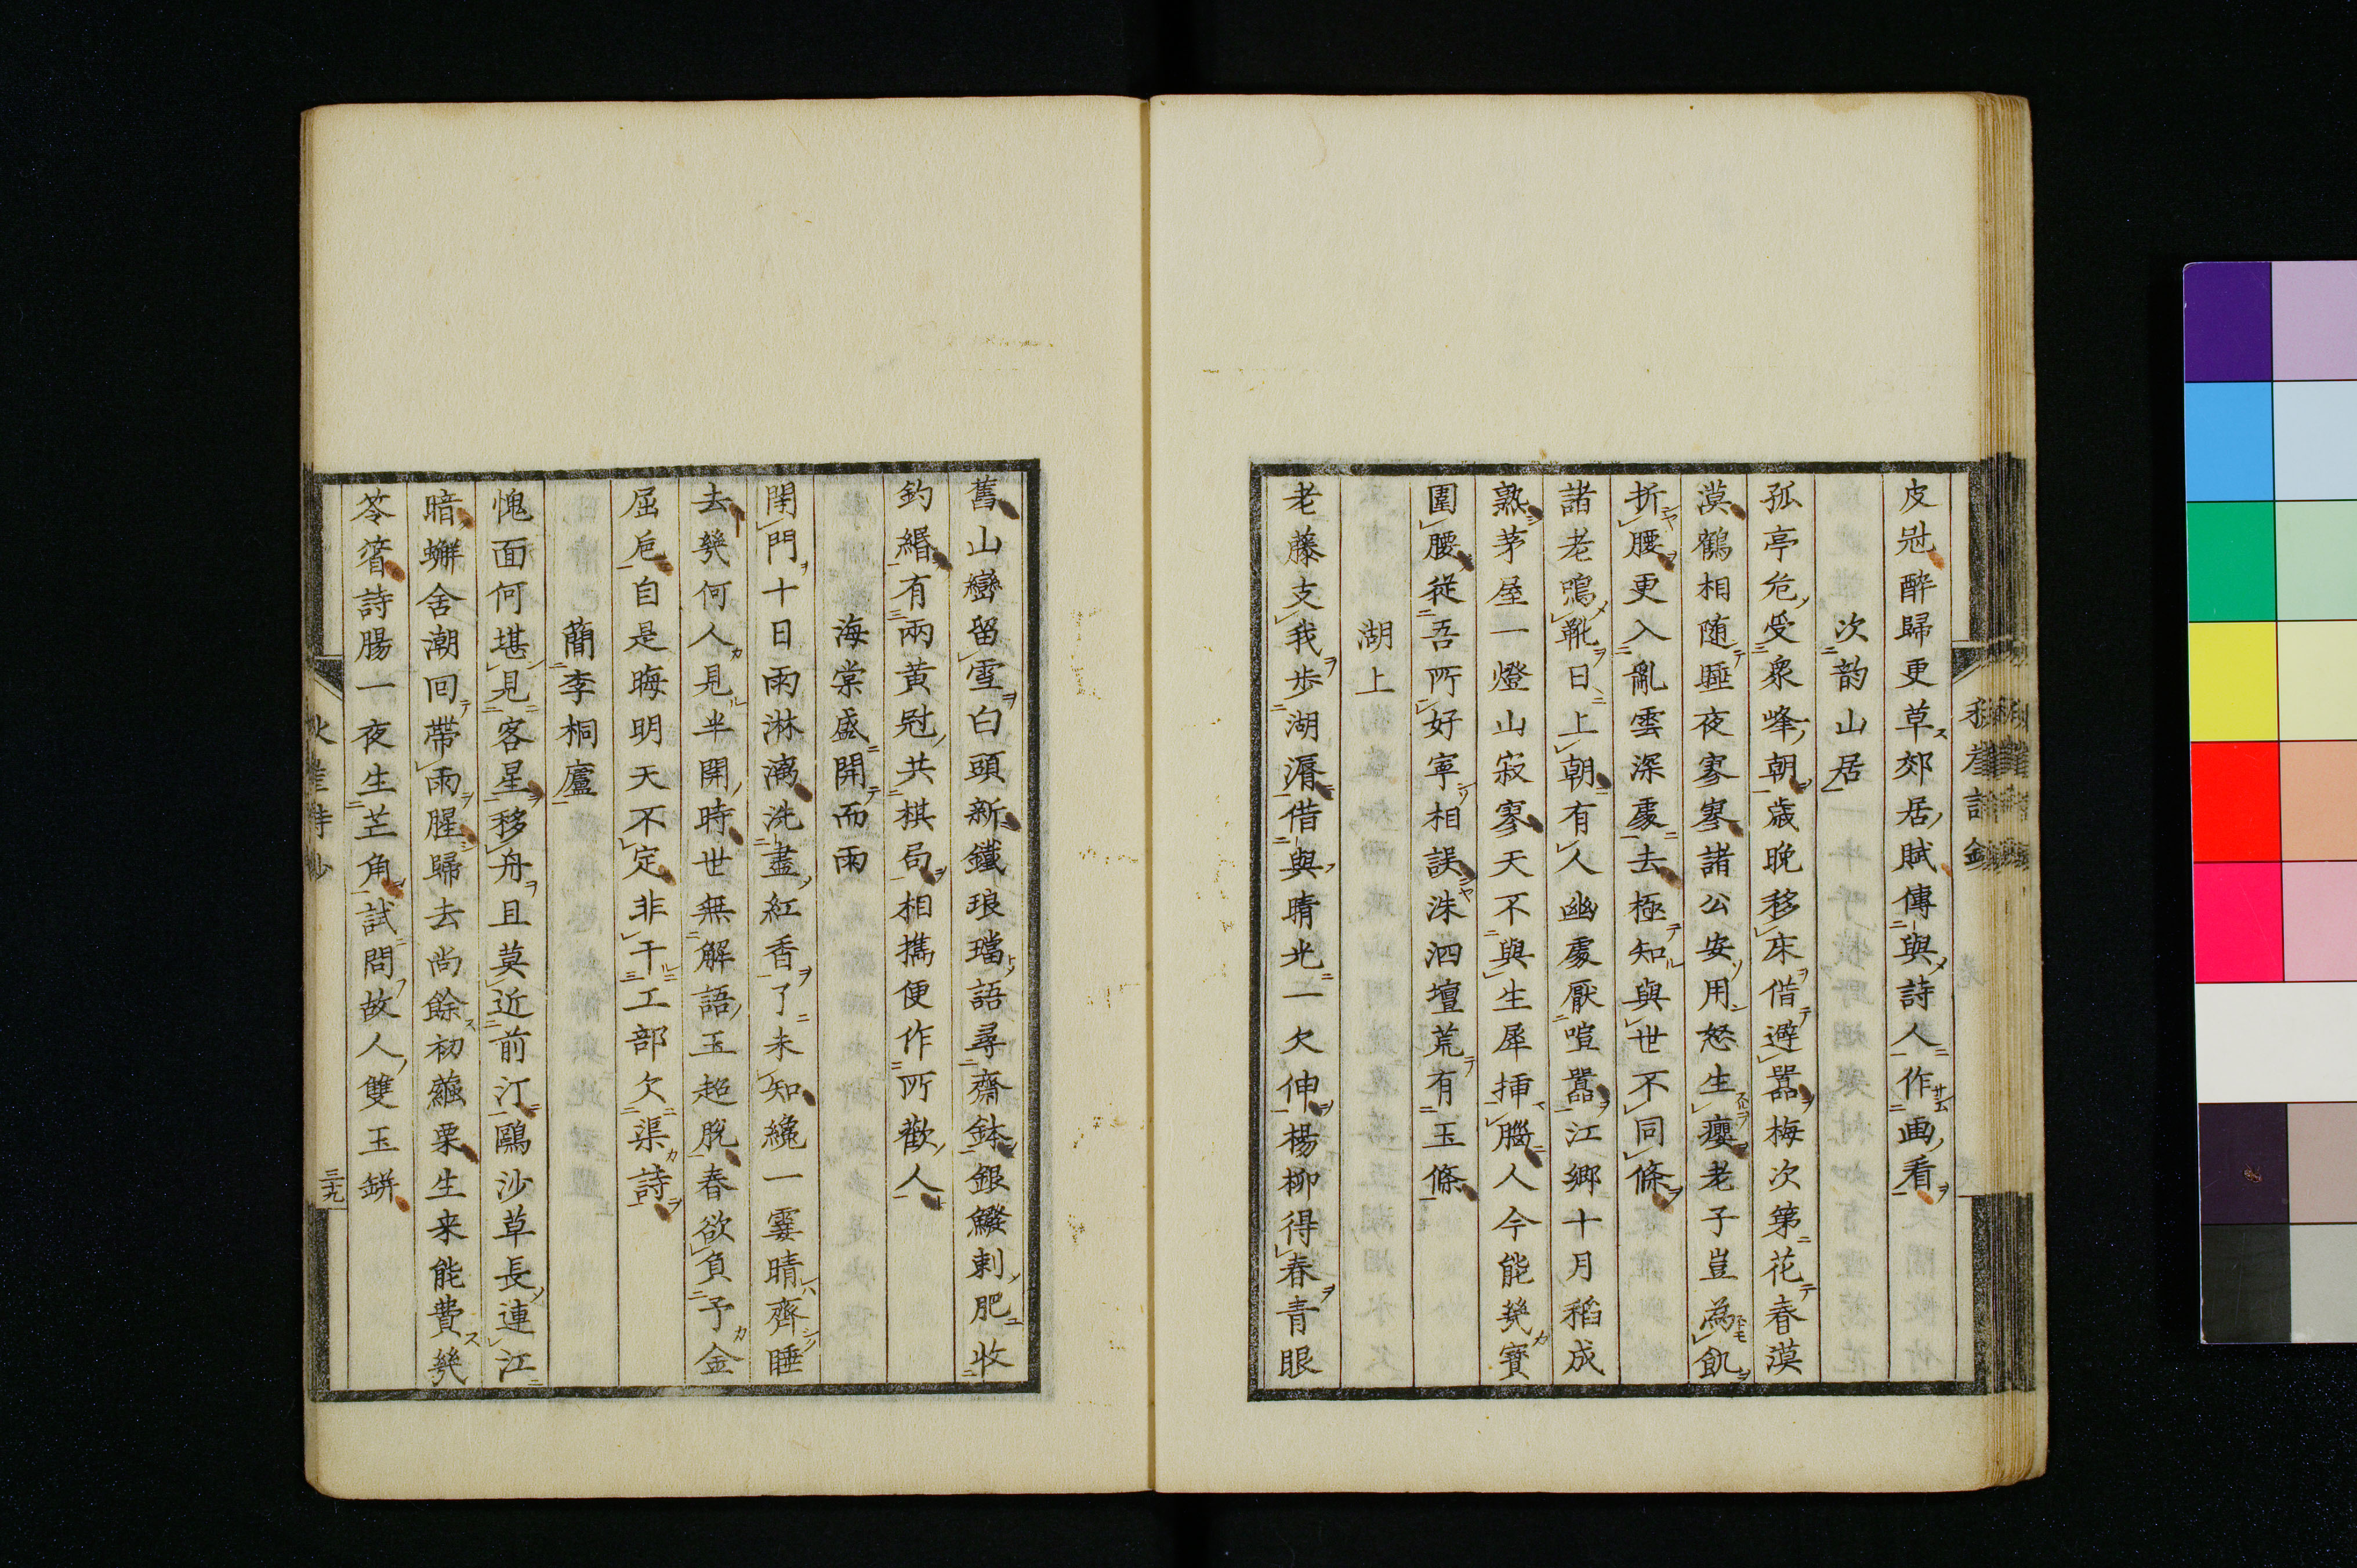 皮冠醉歸更草郊居賦傳與詩人作画看
次韵山居
孤亭危受衆峰朝歳晩移床借避囂梅次第花春漠
漠鶴相随睡夜寥寥諸公安用怒生癭老子豈為飢
折腰更入亂雲深處去極知與世不同條
諸老鳴靴日上朝有人幽處厭喧囂江郷十月稻成
熟茅屋一燈山寂寥天不與生犀挿腦人今能幾寳
圍腰従吾所好寧相誤洙泗壇荒有玉條
湖上
老藤支我歩湖漘借與晴光一欠伸楊柳得春青眼
舊山巒留雪白頭新鐵琅璫語尋齋鉢銀鱍剌肥收
釣緡有兩黄冠共棋局相攜便作所歡人
海棠盛開而雨
閉門十日雨淋漓洗盡紅香了未知纔一霎晴齊睡
去幾何人見半開時世無解語玉超脱春欲負予金
屈卮自是晦明天不定非干工部欠渠詩
簡李桐廬
愧面何堪見客星移舟且莫近前汀鷗沙草長連江
暗蠏舍潮回帶雨腥歸去尚餘初繭栗生来能費幾
笭箵詩腸一夜生芒角試問故人雙玉缾
秋崖詩鈔
三十九